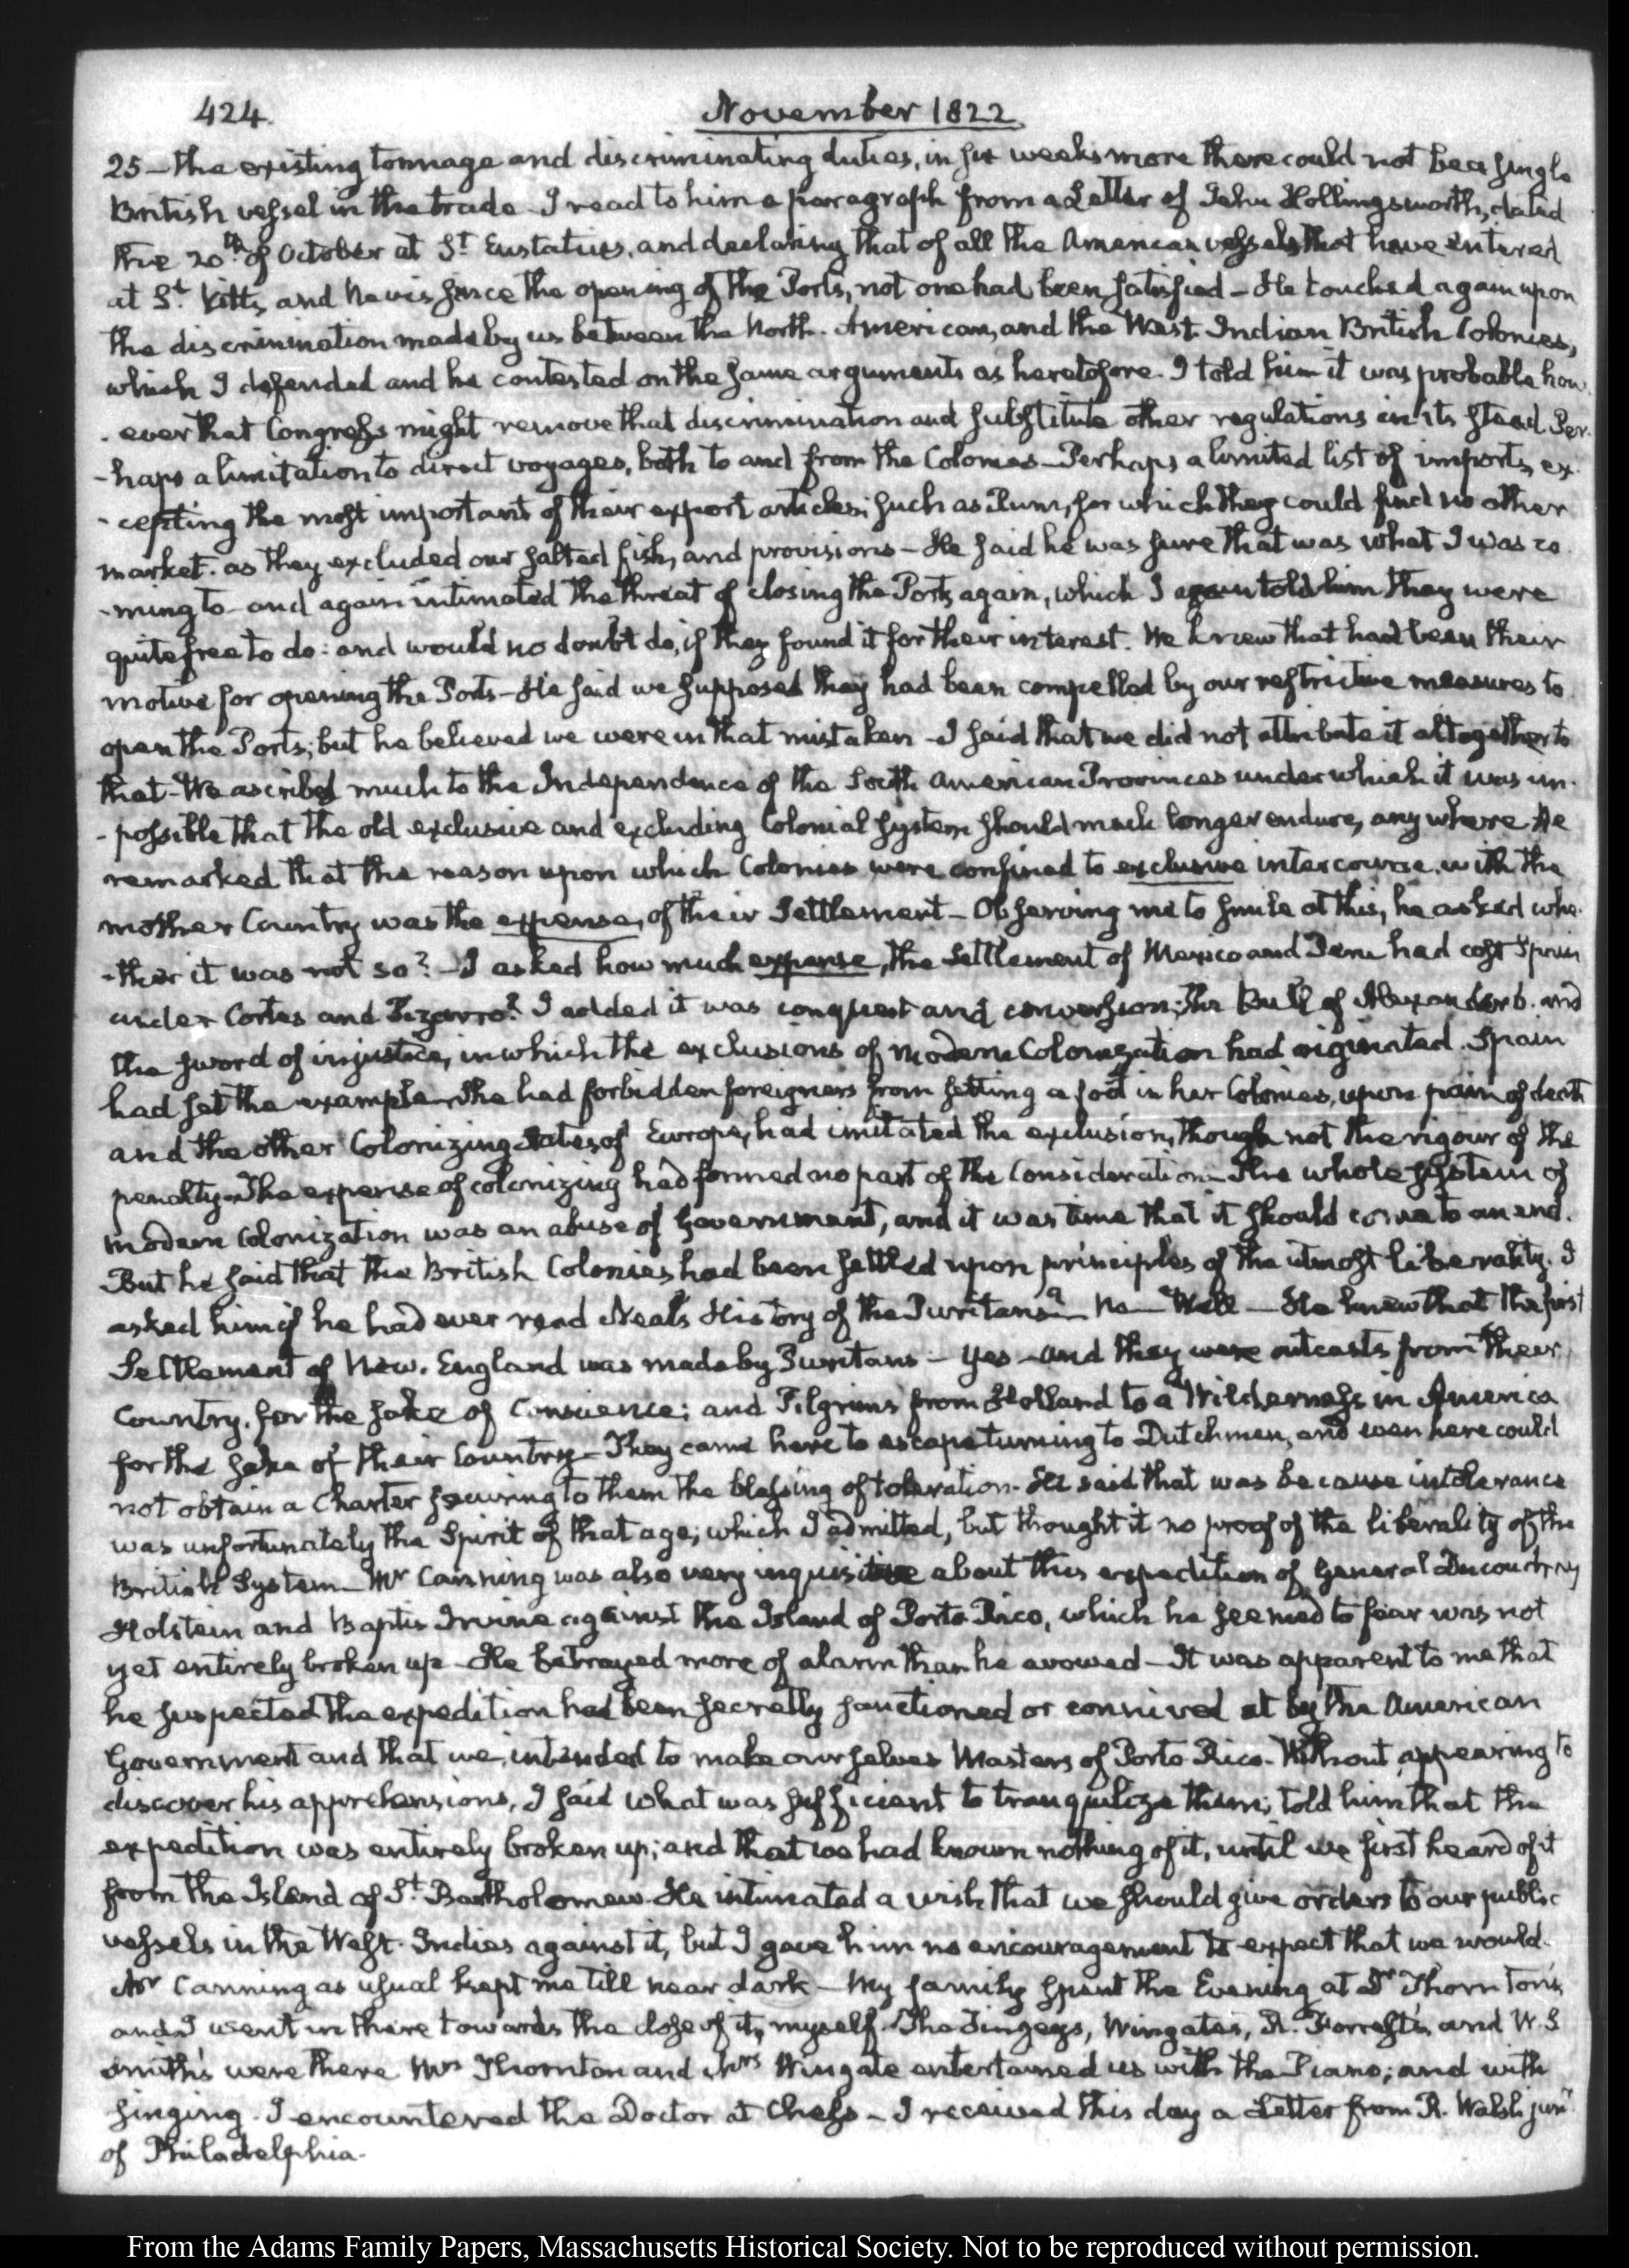 424.
November 1822
25 — the existing tonnage and discriminating duties, in six weeks more there could not be a single
British vessel in the trade — I read to him a paragraph from a Letter of John Hollingsworth, dated
the 20th. of October at St. Eustatius, and declaring that of all the American vessels that have entered
at St. Kitts, and Nevis since the opening of the Ports, not one had been satisfied — He touched again upon
the discrimination made by us between the North-American, and the West-Indian British Colonies,
which I defended and he contested on the same arguments as heretofore. I told him it was probable how-
-ever that Congress might remove that discrimination and substitute other regulations in its stead. Per-
-haps a limitation to direct voyages, both to and from the Colonies — Perhaps a limited list of imports, ex-
-cepting the most important of their export articles; such as Rum, for which they could find no other
market. as they excluded our salted fish, and provisions — He said he was sure that was what I was co-
-ming to — and again intimated the threat of closing the Ports again, which I again told him they were
quite free to do: and would no doubt do, if they found it for their interest. We knew that had been their
motive for opening the Ports — He said we supposed they had been compelled by our restrictive measures to
open the Ports; but he believed we were in that mistaken — I said that we did not attribute it altogether to
that — We ascribed much to the Independence of the South American Provinces under which it was im-
-possible that the old exclusive and excluding Colonial System should much longer endure, any where. He
remarked that the reason upon which Colonies were confined to exclusive intercourse with the
mother Country was the expense, of their Settlement — Observing me to smile at this, he asked whe-
-ther it was not so? — I asked how much expense, the Settlement of Mexico and Peru had cost Spain
under Cortes and Pizarro? I added it was conquest and conversion; the Bull of Alexander 6. and
the sword of injustice, in which the exclusions of modern Colonization had originated. Spain
had set the example. She had forbidden foreigners from setting a foot in her Colonies, upon pain of death
and the other Colonizing States of Europe, had imitated the exclusion, though not the rigour of the
penalty. The expense of colonizing had formed no part of the Consideration — The whole system of
modern Colonization was an abuse of Government, and it was time that it should come to an end.
But he said that the British Colonies had been settled upon principles of the utmost liberality. I
asked him if he had ever read Neal's History of the Puritans? — No — Well — He knew that the first
Settlement of New-England was made by Puritans — Yes — and they were outcasts from their
Country, for the sake of Conscience; and Pilgrims from Holland to a Wilderness in America
for the sake of their Country — They came here to escape turning to Dutchmen, and even here could
not obtain a Charter securing to them the blessing of toleration — He said that was because intolerance
was unfortunately the Spirit of that age; which I admitted, but thought it no proof of the liberality of the
British System — Mr Canning was also very inquisitive about this expedition of General Ducoudray
Holstein and Baptis Irvine against the Island of Porto Rico, which he seemed to fear was not
yet entirely broken up — He betrayed more of alarm than he avowed — It was apparent to me that
he suspected the expedition had been secretly sanctioned or connived at by the American
Government and that we intended to make ourselves Masters of Porto Rico. Without appearing to
discover his apprehensions, I said what was sufficient to tranquilize them; told him that the
expedition was entirely broken up; and that we had known nothing of it, until we first heard of it
from the Island of St. Bartholomew. He intimated a wish that we should give orders to our public
vessels in the West-Indies against it, but I gave him no encouragement to expect that we would.
Mr Canning as usual kept me till near dark — My family spent the Evening at Dr Thornton's,
and I went in there towards the close of it, myself. The Tingeys, Wingates, R. Forrest's, and W. S
Smith's were there. Mrs Thornton and Mrs Wingate entertained us with the Piano; and with
singing — I encountered the Doctor at Chess — I received this day a Letter from R. Walsh junr.
of Philadelphia.
From the Adams Family Papers, Massachusetts Historical Society. Not to be reproduced without permission.